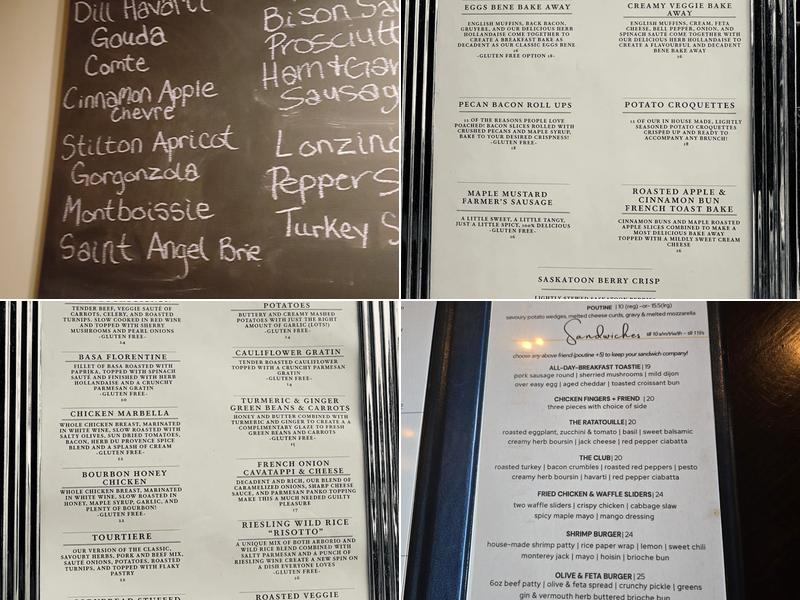 Dill Havarti
Gouda
Comte
Cinnamon Apple
chevre
Stilton Apricot
Gorgonzola
Montboissie
Saint Angel Brie
Bison
Prosciutt
Ham + Gar
Sausag
Lonzino
Pepper S
Turkey S
EGGS BENE BAKE AWAY
ENGLISH MUFFINS, BACK BACON,
GRUYERE, AND OUR DELICIOUS HERB
HOLLANDAISE COME TOGETHER TO
CREATE A BREAKFAST BAKE AS
DECADENT AS OUR CLASSIC EGGS BENE
16
-GLUTEN FREE OPTION 18-
CREAMY VEGGIE BAKE
AWAY
ENGLISH MUFFINS, CREAM, FETA
CHEESE, BELL PEPPER, ONION, AND
SPINACH SAUTE COME TOGETHER WITH
OUR DELICIOUS HERB HOLLANDAISE TO
CREATE A FLAVOURFUL AND DECADENT
BENE BAKE AWAY
16
PECAN BACON ROLL UPS
12 OF THE REASONS PEOPLE LOVE
POACHED! BACON SLICES ROLLED WITH
CRUSHED PECANS AND MAPLE SYRUP,
BAKE TO YOUR DESIRED CRISPINESS!
-GLUTEN FREE-
18
POTATO CROQUETTES
12 OF OUR IN HOUSE MADE, LIGHTLY
SEASONED POTATO CROQUETTES
CRISPED UP AND READY TO
ACCOMPANY ANY BRUNCH!
18
MAPLE MUSTARD
FARMER'S SAUSAGE
A LITTLE SWEET, A LITTLE TANGY,
JUST A LITTLE SPICY, 100% DELICIOUS
-GLUTEN FREE-
16
ROASTED APPLE &
CINNAMON BUN
FRENCH TOAST BAKE
CINNAMON BUNS AND MAPLE ROASTED
APPLE SLICES COMBINED TO MAKE A
MOST DELICIOUS BAKE AWAY
TOPPED WITH A MILDLY SWEET CREAM
CHEESE
16
SASKATOON BERRY CRISP
TENDER BEEF, VEGGIE SAUTÉ OF
CARROTS, CELERY, AND ROASTED
TURNIPS, SLOW COOKED IN RED WINE
AND TOPPED WITH SHERRY
MUSHROOMS AND PEARL ONIONS
-GLUTEN FREE-
24
BASA FLORENTINE
FILLET OF BASA ROASTED WITH
PAPRIKA, TOPPED WITH SPINACH
SAUTE AND FINISHED WITH HERB
HOLLANDAISE AND A CRUNCHY
PARMESAN GRATIN
-GLUTEN FREE-
20
CHICKEN MARBELLA
WHOLE CHICKEN BREAST, MARINATED
IN WHITE WINE, SLOW ROASTED WITH
SALTY OLIVES, SUN DRIED TOMATOES,
BACON, HERB DU PROVENCE SPICE
BLEND AND A SPLASH OF CREAM
-GLUTEN FREE-
22
BOURBON HONEY
CHICKEN
WHOLE CHICKEN BREAST, MARINATED
IN WHITE WINE, SLOW ROASTED IN
HONEY, MAPLE SYRUP, GARLIC, AND
PLENTY OF BOURBON!
-GLUTEN FREE-
22
TOURTIERE
OUR VERSION OF THE CLASSIC,
SAVOURY HERBS, PORK AND BEEF MIX,
SAUTE ONIONS, POTATOES, ROASTED
TURNIPS, AND TOPPED WITH FLAKY
PASTRY
22
POTATOES
BUTTERY AND CREAMY MASHED
POTATOES WITH JUST THE RIGHT
AMOUNT OF GARLIC (LOTS!)
-GLUTEN FREE-
14
CAULIFLOWER GRATIN
TENDER ROASTED CAULIFLOWER
TOPPED WITH A CRUNCHY PARMESAN
GRATIN
-GLUTEN FREE-
14
TURMERIC & GINGER
GREEN BEANS & CARROTS
HONEY AND BUTTER COMBINED WITH
TURMERIC AND GINGER TO CREATE A A
COMPLIMENTARY GLAZE TO FRESH
GREEN BEANS AND CARROTS
-GLUTEN FREE-
15
FRENCH ONION
CAVATAPPI & CHEESE
DECADENT AND RICH, OUR BLEND OF
CARAMELIZED ONIONS, SHARP CHEESE
SAUCE, AND PARMESAN PANKO TOPPING
MAKE THIS A MUCH NEEDED GUILTY
PLEASURE
17
RIESLING WILD RICE
"RISOTTO"
A UNIQUE MIX OF BOTH ARBORIO AND
WILD RICE BLEND COMBINED WITH
SALTY PARMESAN AND A PUNCH OF
RIESLING WINE CREATE A NEW SPIN ON
A DISH EVERYONE LOVES
-GLUTEN FREE-
16
ROASTED VEGGIE
POUTINE | 10 (reg) -or- 15.5(lg)
savoury potato wedges, melted cheese curds, gravy & melted mozzarella
Sandwiches
choose any above friend (poutine +5) to keep your sandwich company!
ALL-DAY-BREAKFAST TOASTIE | 19
pork sausage round | sherried mushrooms | mild dijon
over easy egg | aged cheddar | toasted croissant bun
CHICKEN FINGERS + FRIEND | 20
three pieces with choice of side
THE RATATOUILLE | 20
roasted eggplant, zucchini & tomato | basil | sweet balsamic
creamy herb boursin | jack cheese | red pepper ciabatta
THE CLUB | 20
roasted turkey | bacon crumbles | roasted red peppers | pesto
creamy herb boursin | havarti | red pepper ciabatta
FRIED CHICKEN & WAFFLE SLIDERS | 24
two waffle sliders | crispy chicken | cabbage slaw
spicy maple mayo | mango dressing
SHRIMP BURGER | 24
house-made shrimp patty | rice paper wrap | lemon | sweet chili
monterey jack | mayo | hoisin | brioche bun
OLIVE & FETA BURGER | 25
6oz beef patty | olive & feta spread | crunchy pickle | greens
gin & vermouth herb buttered brioche bun